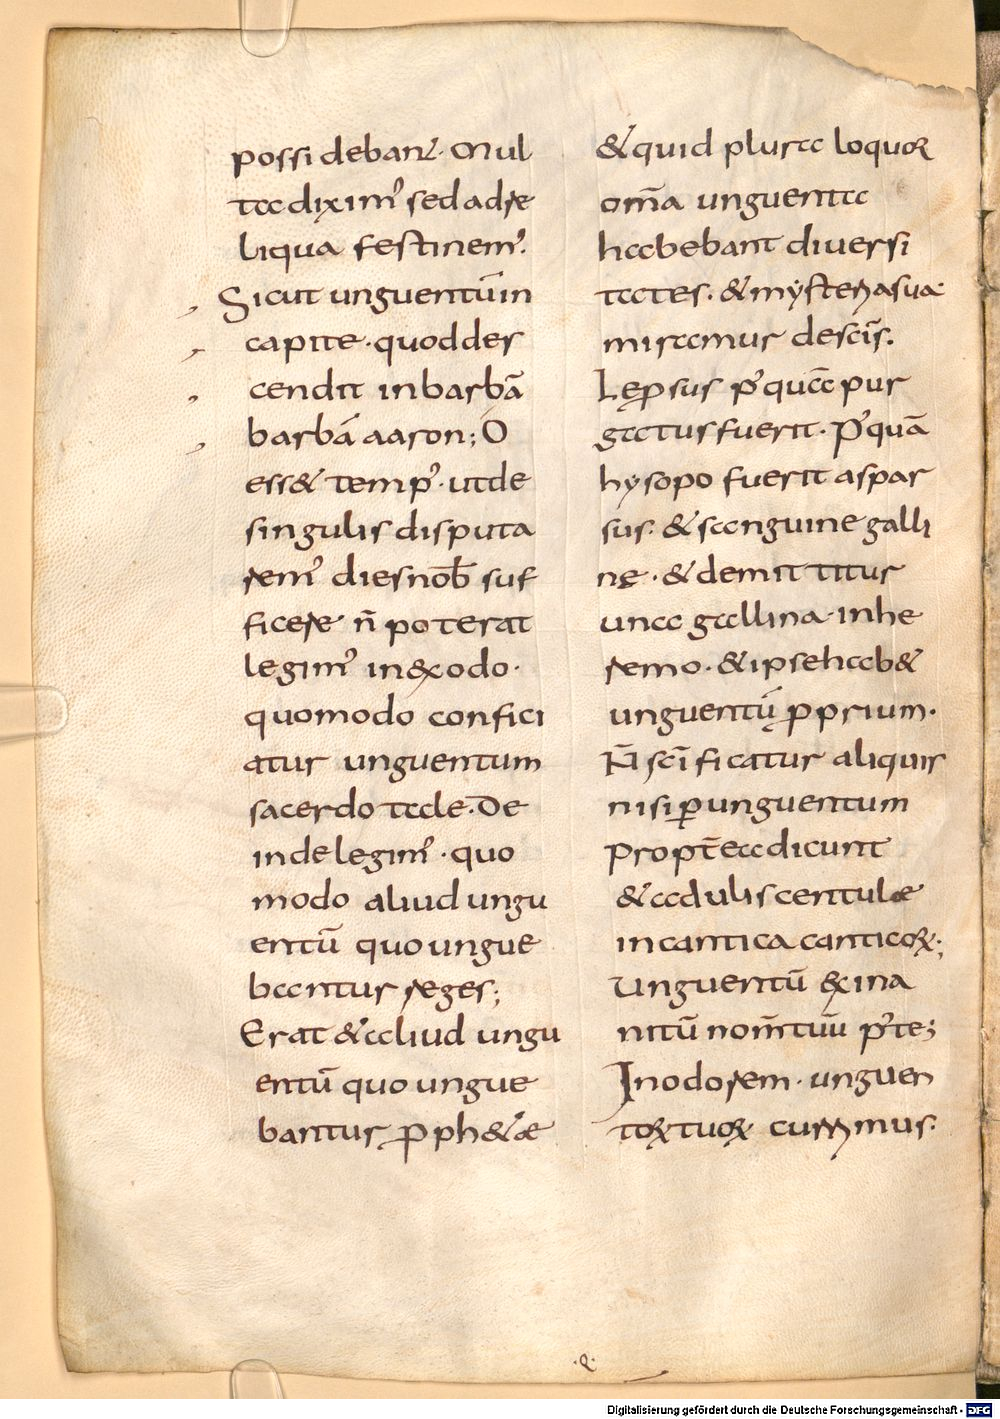 possidebant. Mul
ta diximꝰ sed ad re
liqua festinemꝰ.
Sicut unguentū in
capite. quod des
cendit in barbā
barbā aaron; O
ess& tempꝰ. ut de
singulis disputa
remꝰ dies nob̄ suf
ficere n̄ poterat
legimꝰ in exodo.
quomodo confici
atur unguentum
sacerdotale. De
inde legimꝰ. quo
modo aliud ungu
entū quo ungue
bantur reges;
Erat & aliud ungu
entū quo ungue
bantur ꝓph&æ
& quid plura loquor
om̄a unguenta
habebant diversi
tates. & mysteria sua
miscemus de sc̄is.
Leprosus pꝰquā pur
gatus fuerit. Pꝰquā
hysopo fuerit aspar
sus. & sanguine galli
nę. & demittitur
una gallina. in he
remo. & ipse hab&
unguentū ꝓprium.
N̄ sc̄ificatur aliquis
nisi ꝑ unguentum
Propt̄ea dicunt
& adulescentulæ
in cantica canticoꝝ;
Unguentū exina
nitū nom̄ tuū pꝰte;
In odorem. unguen
toꝝ tuoꝝ currimus.
.q.
Digitalisierung gefördert durch die Deutsche Forschungsgemeinschaft - DFG